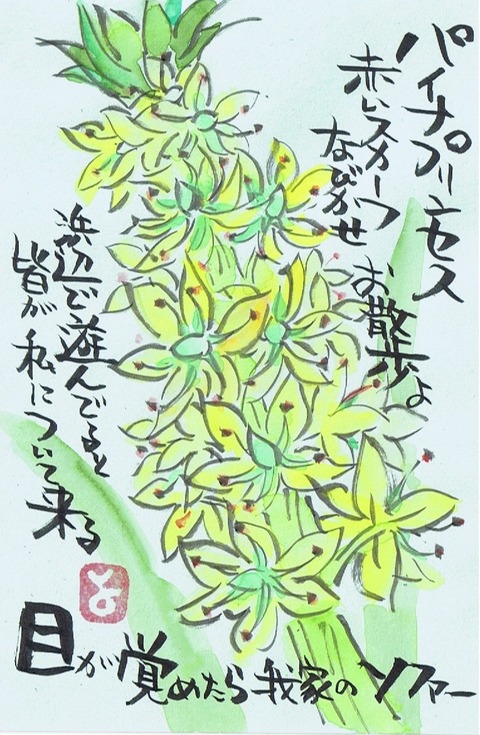 パイナプリンセス
赤いスカーフ
なびかせ お散歩よ
浜辺で遊んでると
皆が私について来る
よ
目が覚めたら我家のソファー